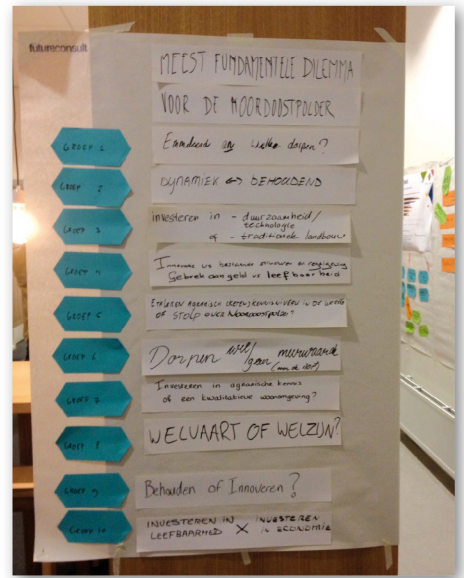 futureconsult
MEEST FUNDAMENTELE DILEMMA
VOOR DE NOORDOOSTPOLDER
GROEP 1
Emmeloord en dorpen?
GROEP 2
DYNAMIEK <-> BEHOUDEND
GROEP 3
investeren in - duurzaamheid/
technologie
of - traditionele landbouw
GROEP 4
Innovatie vs bestaande structuren en regelgeving
Gebrek aan geld vs leefbaarheid
GROEP 5
AGRARISCH IN DE WERELD
OF STOLP OVER NOORDOOSTPOLDER?
GROEP 6
Dorpen wel/geen meerwaarde
GROEP 7
Investeren in agrarische kennis
of een kwalitatieve woonomgeving?
GROEP 8
WELVAART OF WELZIJN?
GROEP 9
Behouden of Innoveren?
GROEP 10
INVESTEREN IN LEEFBAARHEID X INVESTEREN IN ECONOMIE